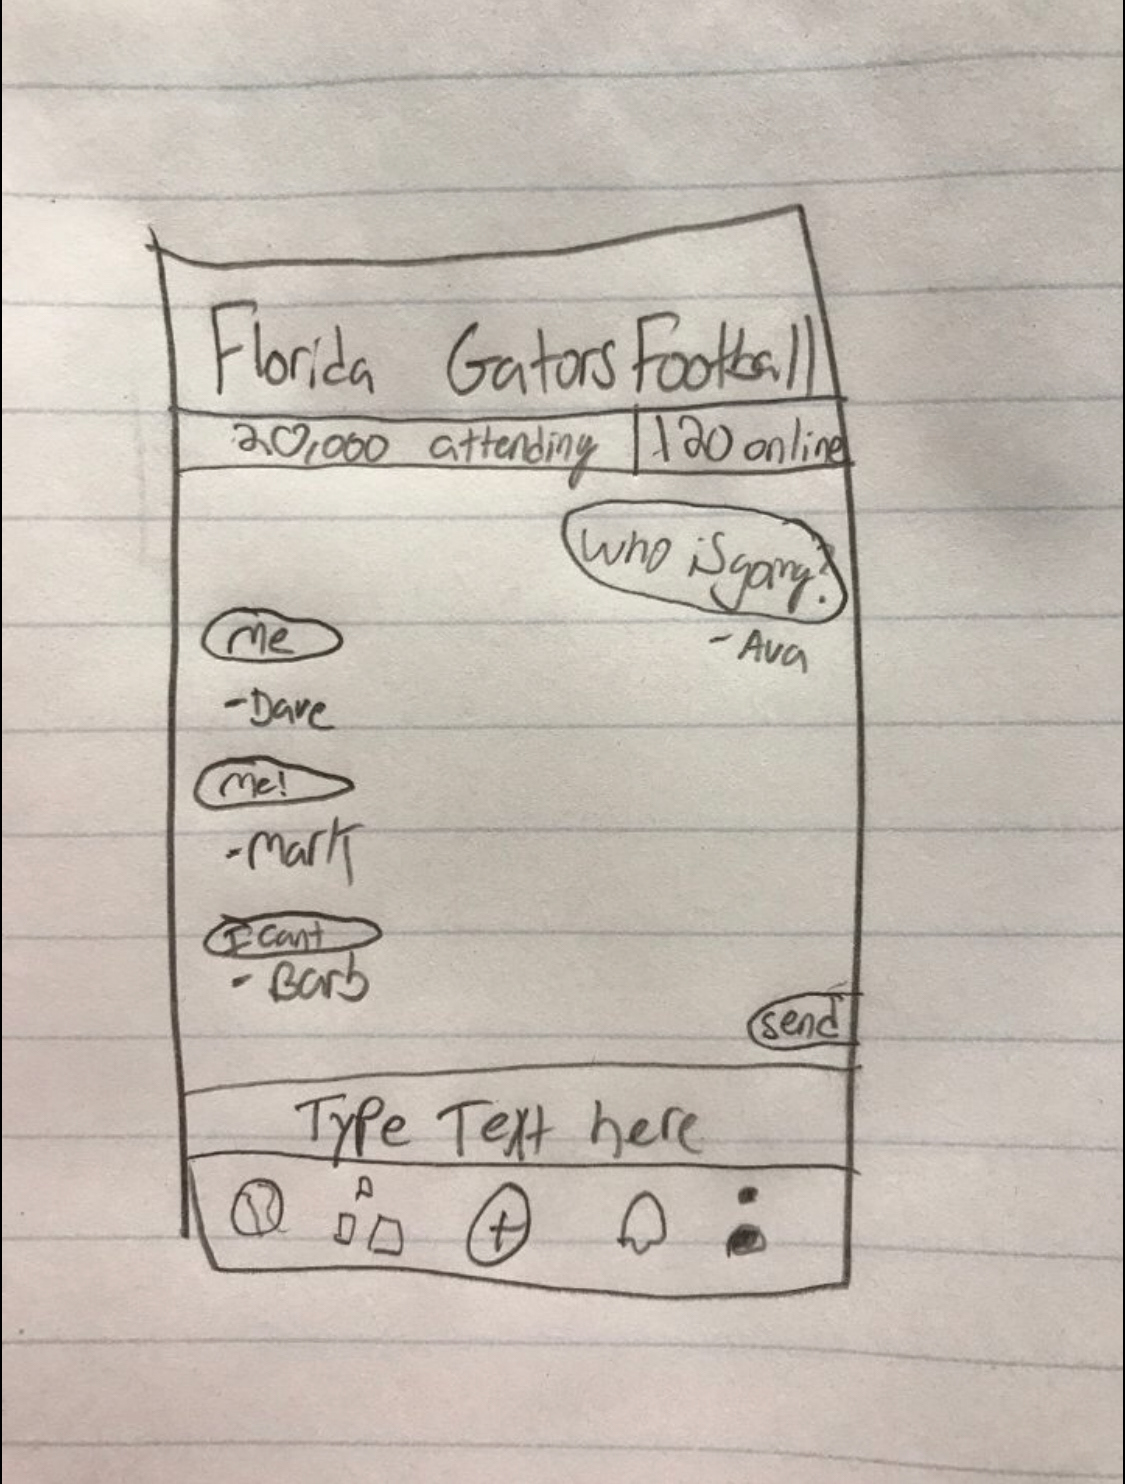 Florida Gators Football
20,000 attending 120 online
Who is going?
- Ava
me
- Dave
me!
- Mark
I cant
- Barb
send
Type Text here